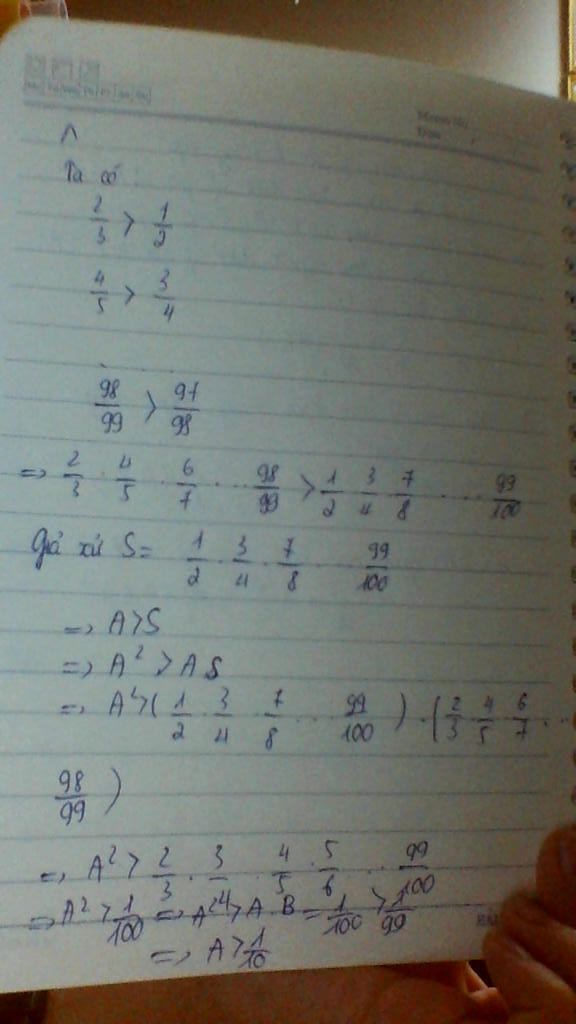 A
Ta có
2/3 > 1/2
4/5 > 3/4
98/99 > 97/98
=> 2/3 . 4/5 . 6/7 ... 98/99 > 1/2 . 3/4 . 7/8 ... 99/100
Giả xử S = 1/2 . 3/4 . 7/8 99/100
=> A > S
=> A² > A S
=> A² > ( 1/2 . 3/4 . 7/8 ... 99/100 ) . ( 2/3 . 4/5 . 6/7 ...
98/99 )
=> A² > 2/3 . 3/4 . 4/5 . 5/6 ... 99/100
=> A² > 1/100 => A² > A . B = 1/100 > 1/99
=> A > 1/10